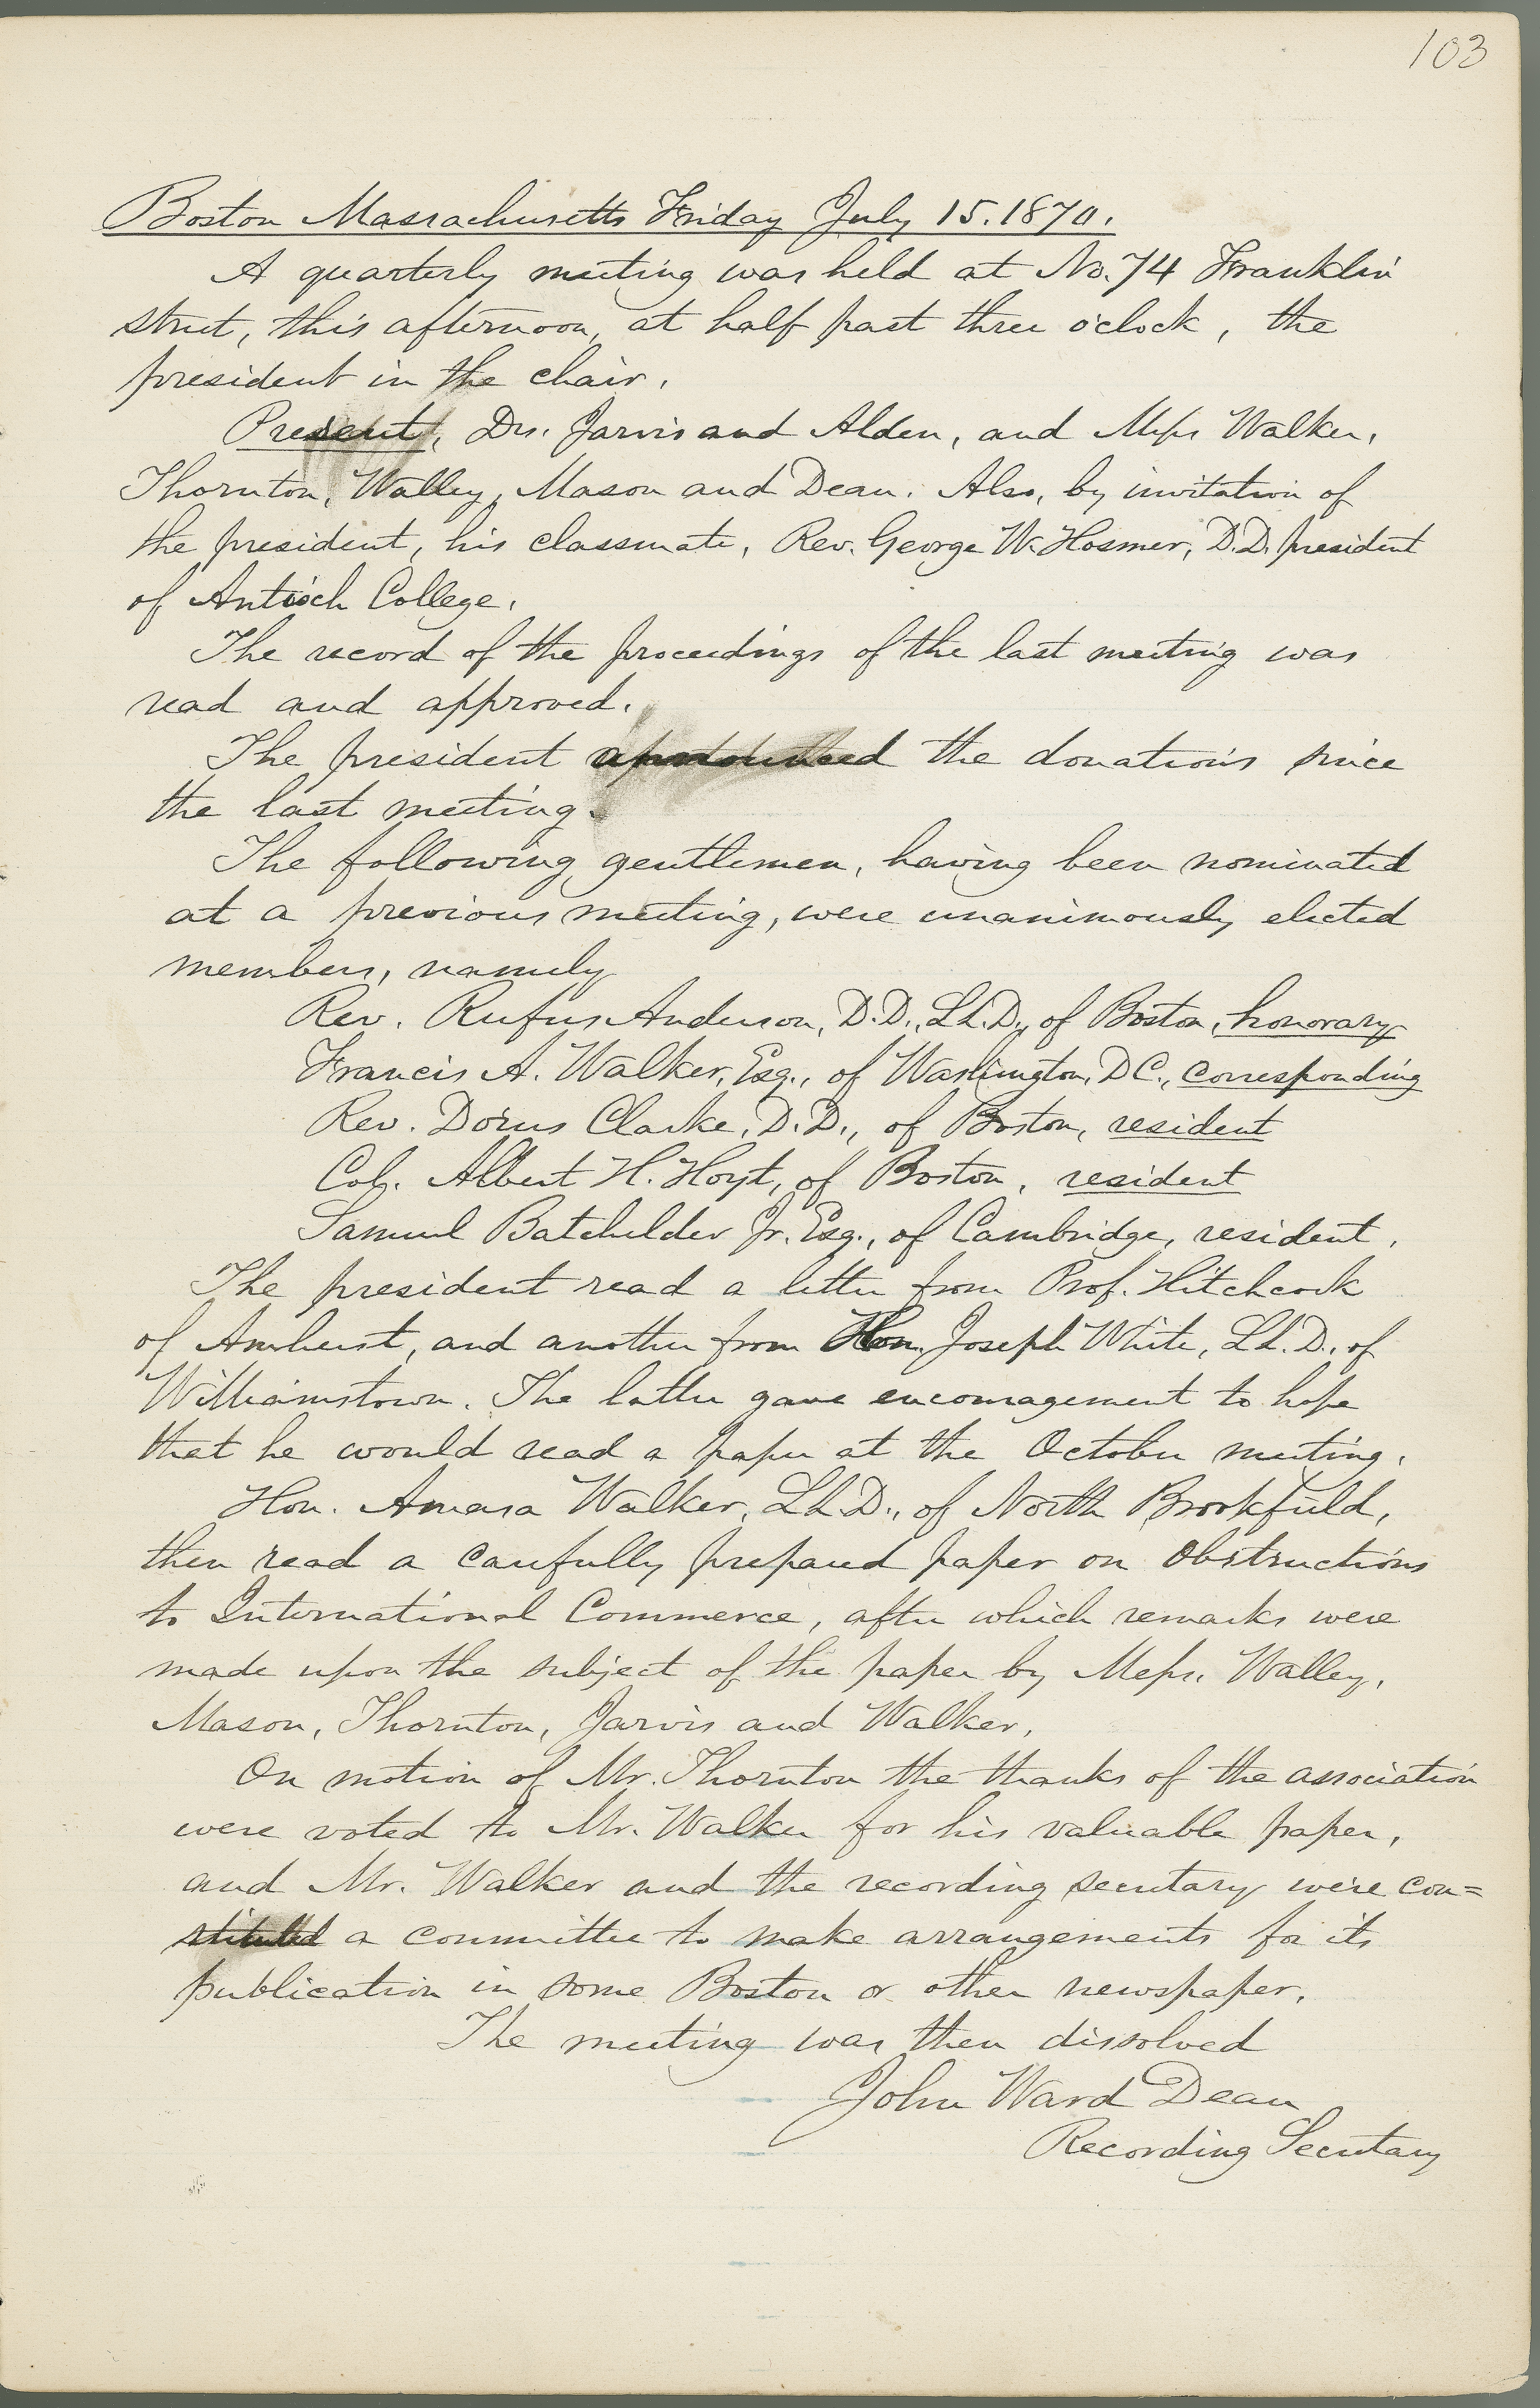 103
Boston Massachusetts Friday July 15. 1870.
A quarterly meeting was held at No. 74 Franklin
street, this afternoon, at half past three o'clock, the
president in the chair.
Present, Drs. Jarvis and Alden, and Messrs Walker,
Thornton, Walley, Mason and Dean. Also, by invitation of
the president, his classmate, Rev. George W. Hosmer, D.D. president
of Antioch College.
The record of the proceedings of the last meeting was
read and approved.
The president announced the donations since
the last meeting.
The following gentlemen, having been nominated
at a previous meeting, were unanimously elected
members, namely
Rev. Rufus Anderson, D.D., LL.D., of Boston, honorary
Francis A. Walker, Esq., of Washington, D C., corresponding
Rev. Dorus Clarke, D.D., of Boston, resident
Col. Albert H. Hoyt, of Boston, resident
Samuel Batchelder Jr. Esq., of Cambridge, resident.
The president read a letter from Prof. Hitchcock
of Amherst, and another from Hon. Joseph White, LL.D., of
Williamstown. The latter gave encouragement to hope
that he would read a paper at the October meeting.
Hon. Amasa Walker, LL.D., of North Brookfield,
then read a carefully prepared paper on Obstructions
to International Commerce, after which remarks were
made upon the subject of the paper by Messrs. Walley,
Mason, Thornton, Jarvis and Walker.
On motion of Mr. Thornton the thanks of the association
were voted to Mr. Walker for his valuable paper,
and Mr. Walker and the recording secretary were con=
stituted a committee to make arrangements for its
publication in some Boston or other newspaper.
The meeting was then dissolved
John Ward Dean
Recording Secretary